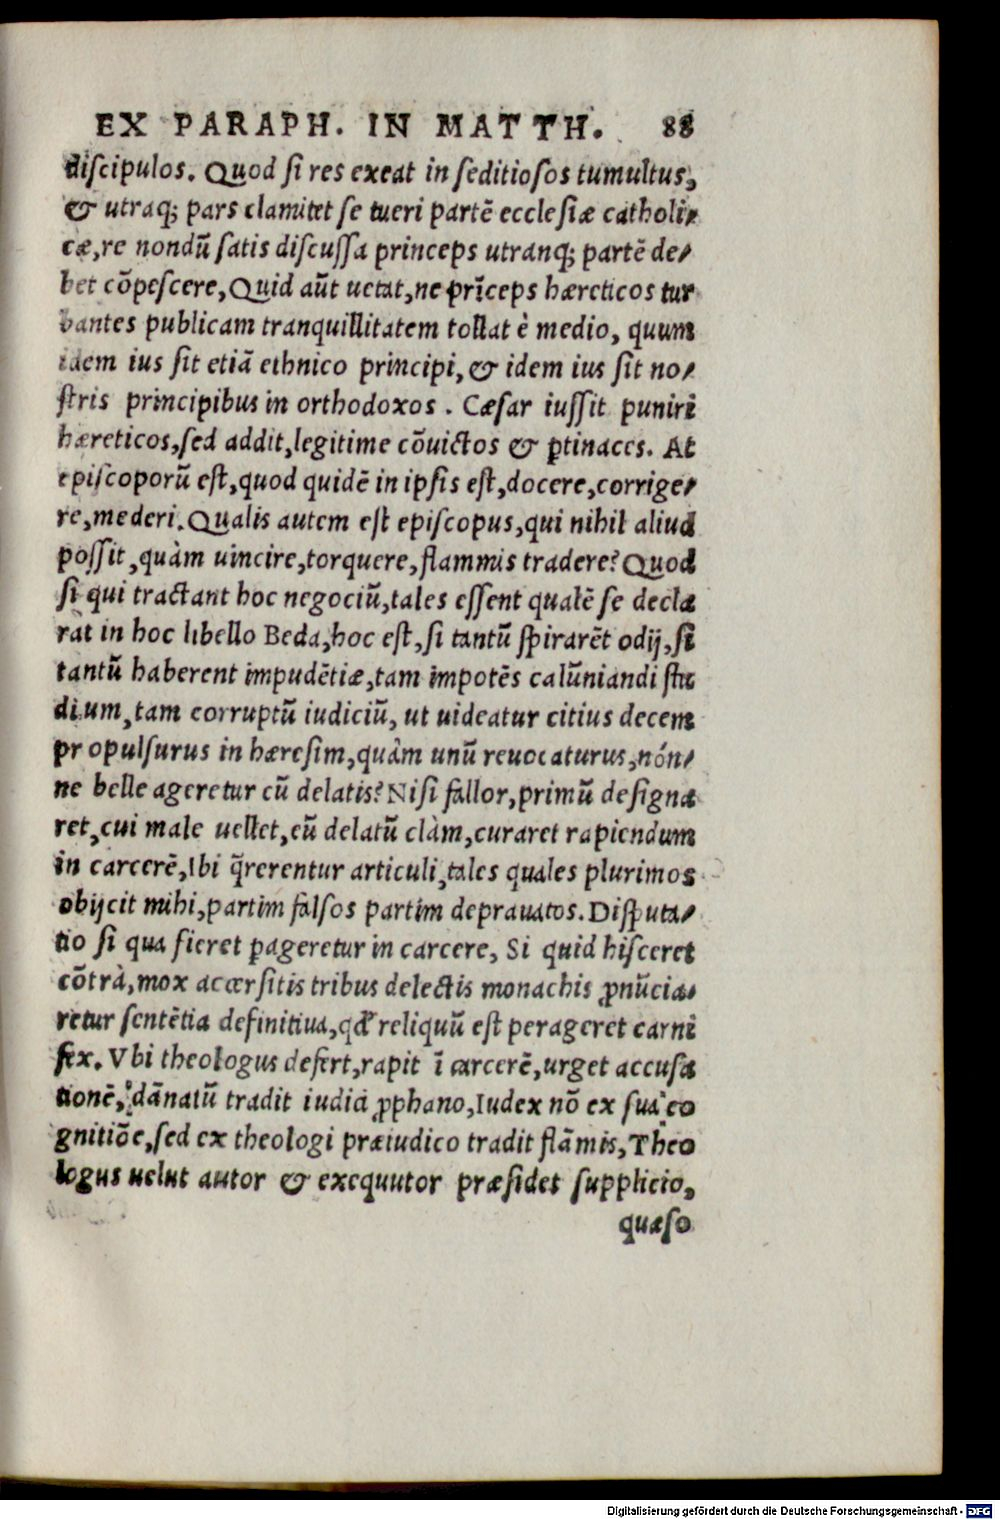 EX PARAPH. IN MATTH. 88
diſcipulos. Quod ſi res exeat in ſeditioſos tumultus,
& utraq; pars clamitet ſe tueri partē eccleſiæ catholi-
cæ, re nondū ſatis diſcuſſa princeps utranq; partē de-
bet cōpeſcere, Quid aūt uetat, ne prīceps hæreticos tur
bantes publicam tranquillitatem tollat è medio, quum
idem ius ſit etiā ethnico principi, & idem ius ſit no-
ſtris principibus in orthodoxos. Cæſar iuſſit puniri
hæreticos, ſed addit, legitime cōuictos & ꝑtinaces. At
epiſcoporū eſt, quod quidē in ipſis eſt, docere, corrige-
re, mederi. Qualis autem eſt epiſcopus, qui nihil aliud
poſſit, quàm uincire, torquere, flammis tradere? Quod
ſi qui tractant hoc negociū, tales eſſent qualē ſe decla
rat in hoc libello Beda, hoc eſt, ſi tantū ſpirarēt odij, ſi
tantū haberent impudētiæ, tam impotēs calūniandi ſtu
dium, tam corruptū iudiciū, ut uideatur citius decem
propulſurus in hæreſim, quàm unū reuocaturus, nón-
ne belle ageretur cū delatis? Niſi fallor, primū deſigna
ret, cui male uellet, eū delatū clàm, curaret rapiendum
in carcerē, Ibi q̄rerentur articuli, tales quales plurimos
obijcit mihi, partim falſos partim deprauatos. Diſputa-
tio ſi qua fieret ꝑageretur in carcere, Si quid hiſceret
cōtrà, mox accerſitis tribus delectis monachis ꝓnūcia-
retur ſentētia definitiua, qđ reliquū eſt perageret carni
fex. Vbi theologus defert, rapit ī carcerē, urget accuſa
tionē, dānatū tradit iudici ꝓphano, Iudex nō ex ſua co
gnitiōe, ſed ex theologi præiudico tradit flāmis, Theo
logus uelut autor & exequutor præſidet ſupplicio,
quæſo
Digitalisierung gefördert durch die Deutsche Forschungsgemeinschaft - DFG